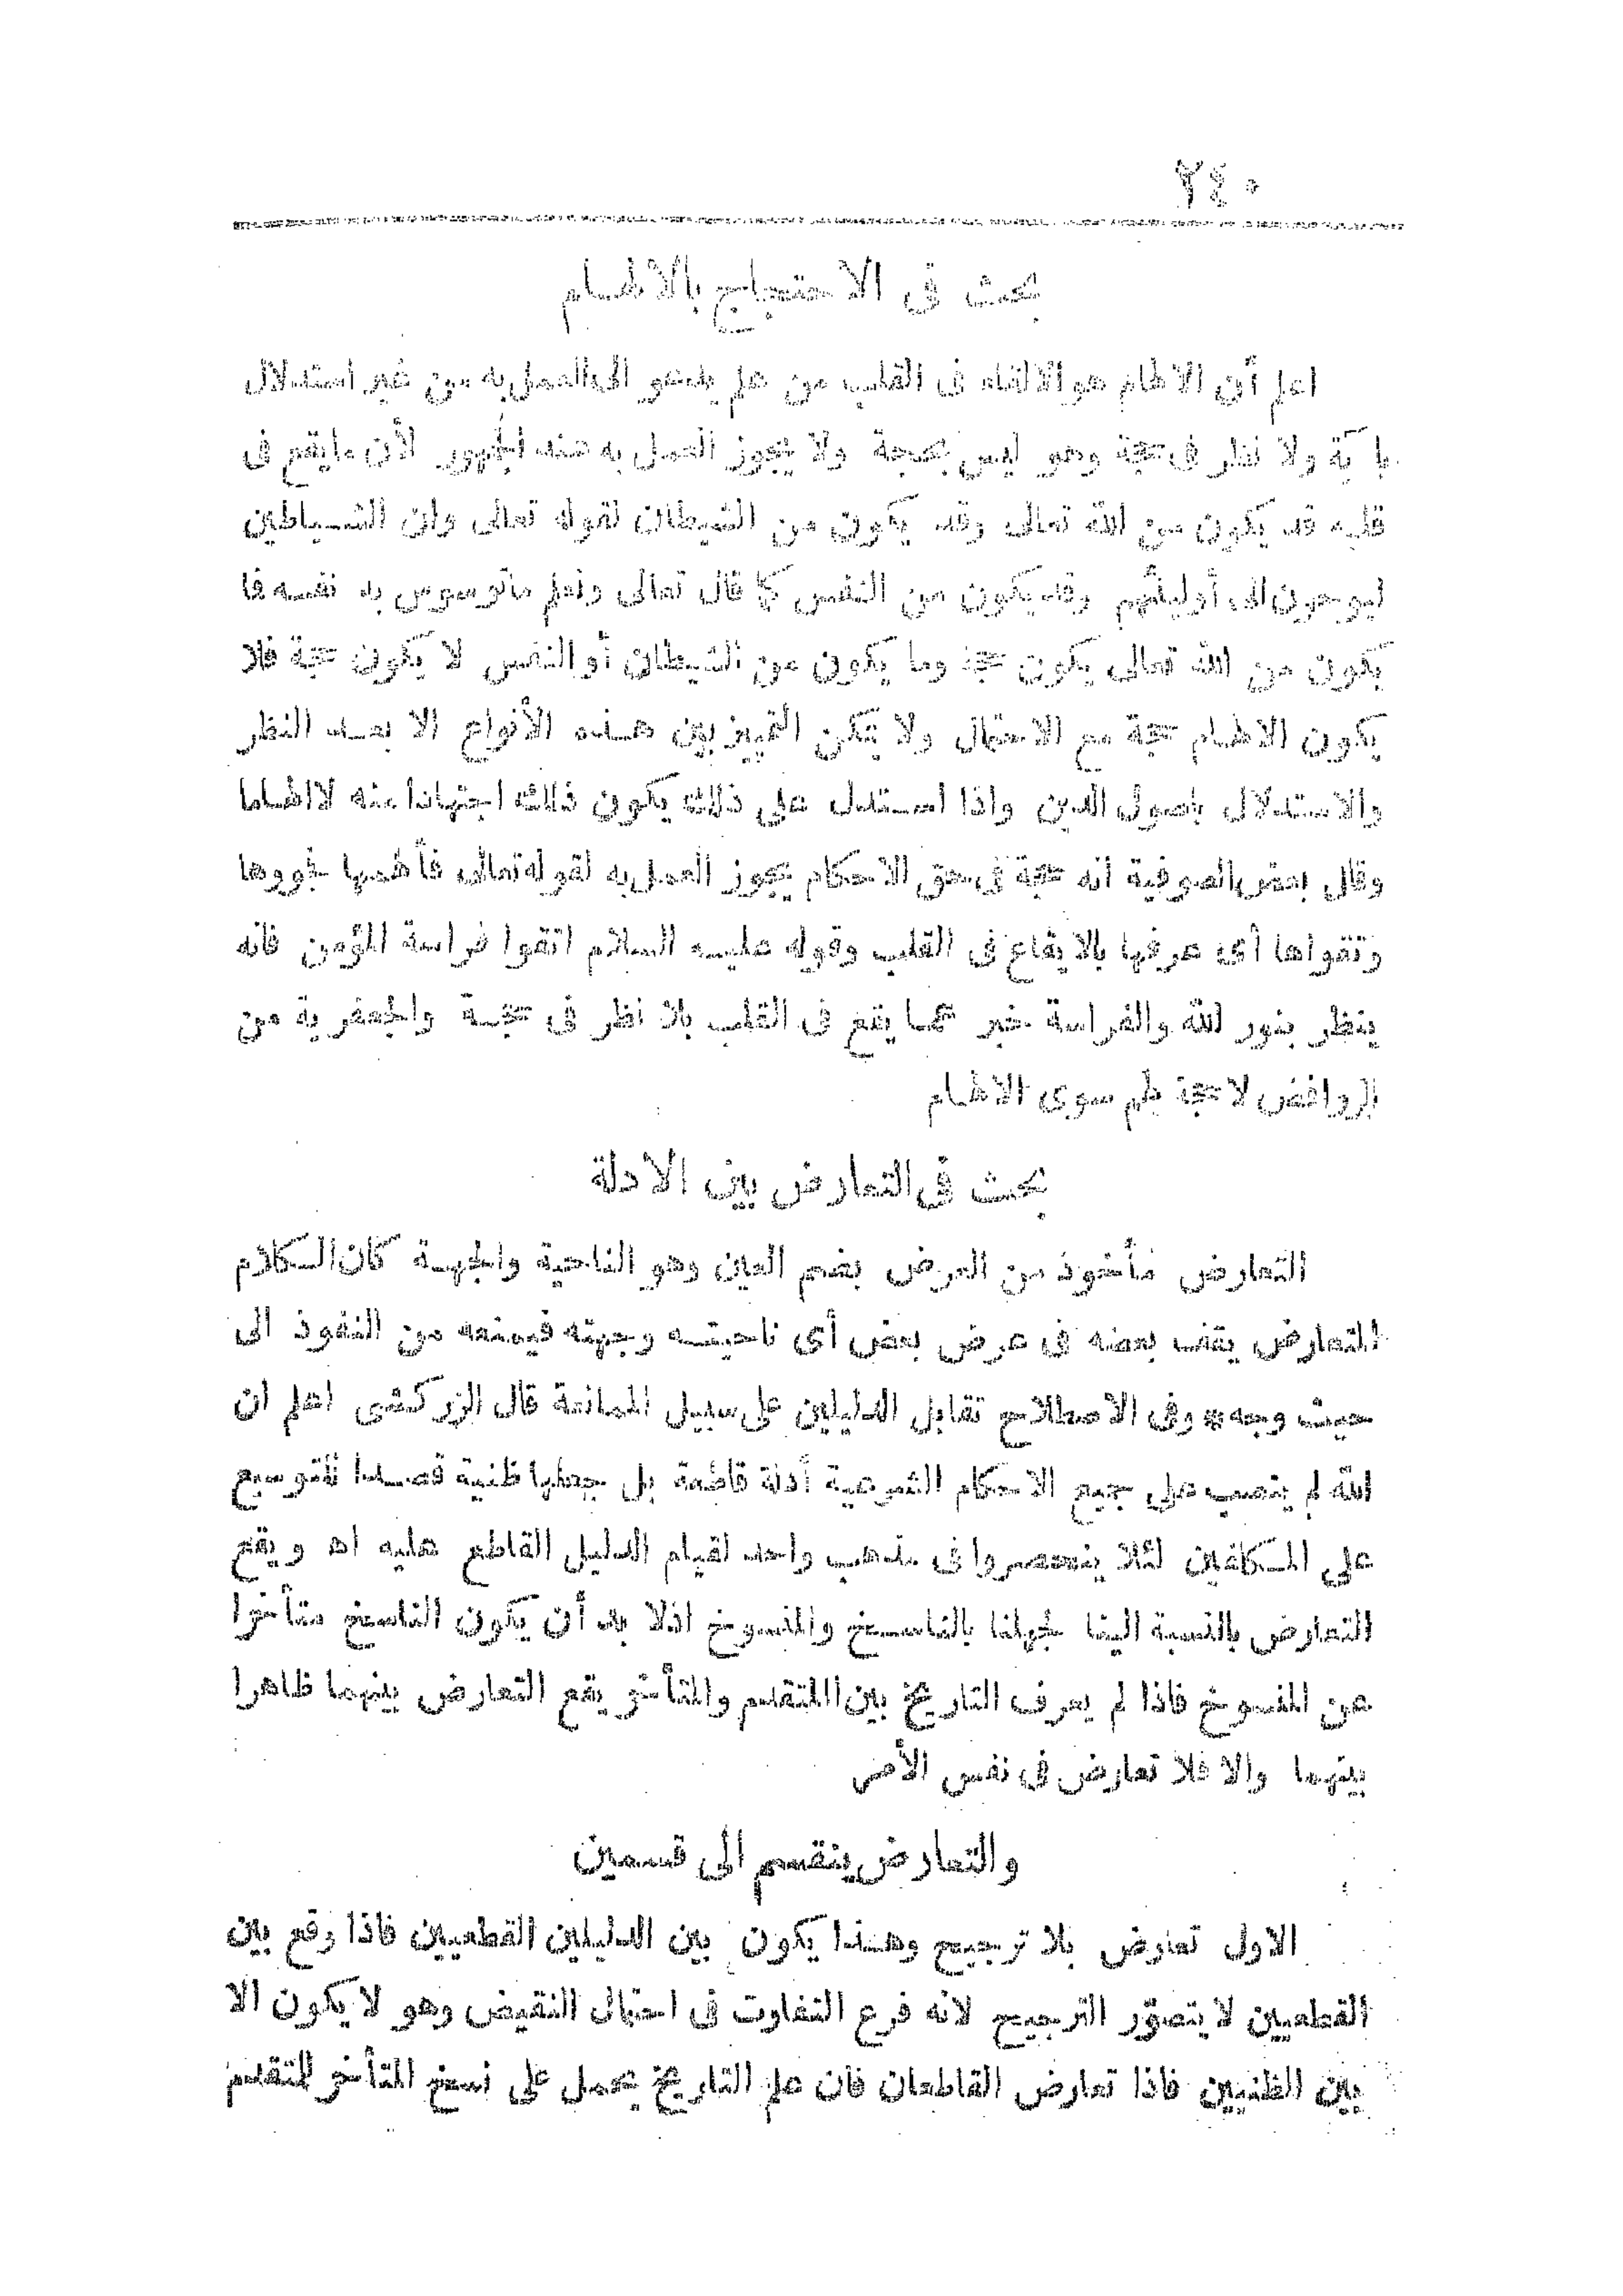 ٢٤٠
بحث فى الاحتجاج بالالهام
اعلم أن الالهام هو الالقاء فى القلب من علم يدعو الى العمل به من غير استدلال
بآية ولا نظر فى حجة وهو ليس بحجة ولا يجوز العمل به عند الجمهور لأن مايقع فى
قلبه قد يكون من الله تعالى وقد يكون من الشيطان لقوله تعالى وان الشياطين
ليوحون الى أوليائهم وقد يكون من النفس كما قال تعالى ونعلم ماتوسوس به نفسه فما
يكون من الله تعالى يكون حجة وما يكون من الشيطان أو النفس لا يكون حجة فلا
يكون الالهام حجة مع الاحتمال ولا يمكن التمييز بين هذه الأنواع الا بعد النظر
والاستدلال باصول الدين واذا استدل على ذلك يكون ذلك اجتهادا منه لا الهاما
وقال بعض الصوفية انه حجة فى حق الاحكام يجوز العمل به لقوله تعالى فألهمها فجورها
وتقواها أى عرفها بالايقاع فى القلب وقوله عليه السلام اتقوا فراسة المؤمن فانه
ينظر بنور الله والفراسة خبر عما يقع فى القلب بلا نظر فى حجة والجعفرية من
الروافض لا حجة لهم سوى الالهام
بحث فى التعارض بين الادلة
التعارض مأخوذ من العرض بضم العين وهو الناحية والجهة كان الكلام
المتعارض يقف بعضه فى عرض بعض أى ناحيته وجهته فيمنعه من النفوذ الى
حيث وجه * وفى الاصطلاح تقابل الدليلين على سبيل الممانعة قال الزركشى اعلم ان
الله لم ينصب على جميع الاحكام الشرعية أدلة قاطعة بل جعلها ظنية قصدا للتوسيع
على المكلفين لئلا ينحصروا فى مذهب واحد لقيام الدليل القاطع عليه اه ويقع
التعارض بالنسبة الينا لجهلنا بالناسخ والمنسوخ اذلا بد أن يكون الناسخ متأخرا
عن المنسوخ فاذا لم يعرف التاريخ بين المتقدم والمتأخر يقع التعارض بينهما ظاهرا
بينهما والا فلا تعارض فى نفس الأمر
والتعارض ينقسم الى قسمين
الاول تعارض بلا ترجيح وهذا يكون بين الدليلين القطعيين فاذا وقع بين
القطعيين لا يتصوّر الترجيح لانه فرع التفاوت فى احتمال النقيض وهو لا يكون الا
بين الظنيين فاذا تعارض القاطعان فان علم التاريخ يحمل على نسخ المتأخر للمتقدم